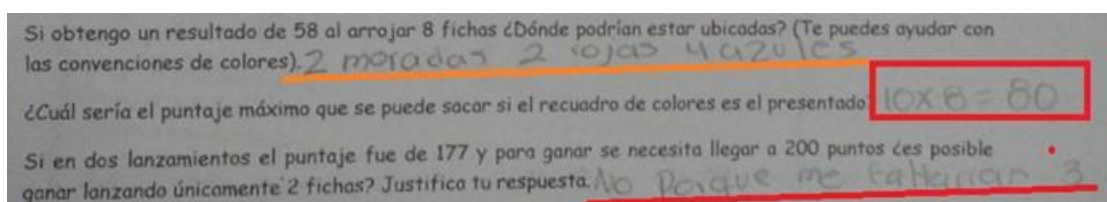 Si obtengo un resultado de 58 al arrojar 8 fichas ¿Dónde podrían estar ubicadas? (Te puedes ayudar con
las convenciones de colores). 2 moradas 2 rojas 4 azules
¿Cuál sería el puntaje máximo que se puede sacar si el recuadro de colores es el presentado? 10x8 = 80
Si en dos lanzamientos el puntaje fue de 177 y para ganar se necesita llegar a 200 puntos ¿es posible
ganar lanzando únicamente 2 fichas? Justifica tu respuesta. No Porque me faltarian 3